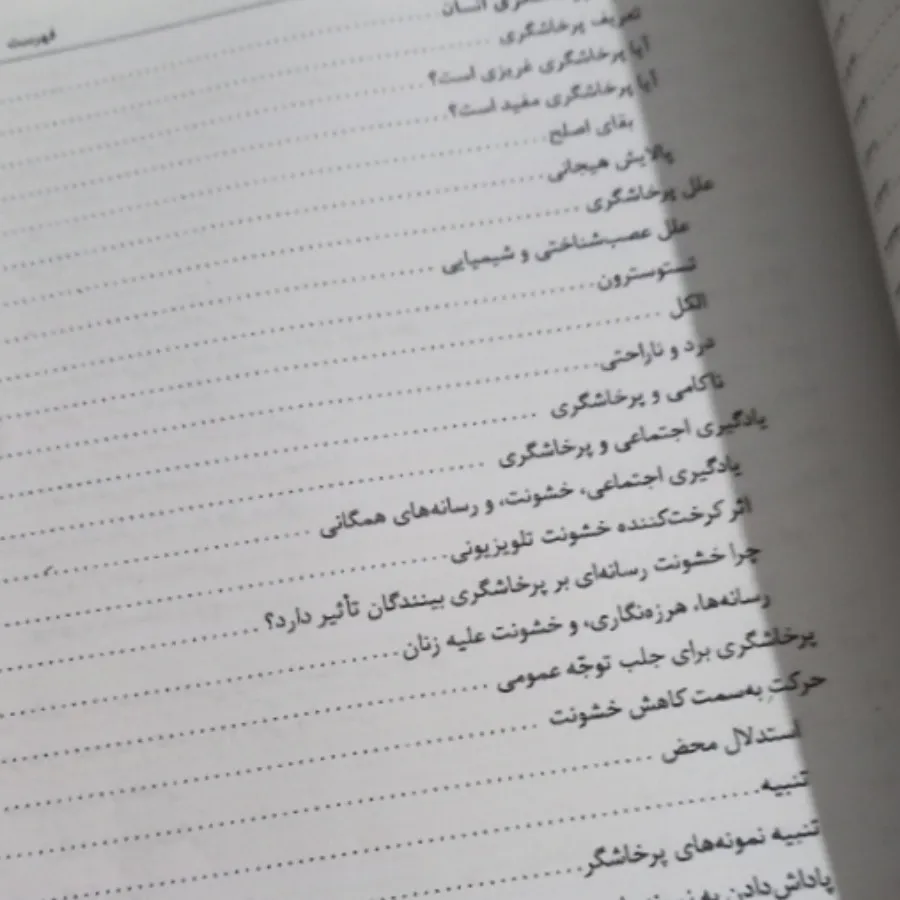 فهرست
انسان
تعریف پرخاشگری
آیا پرخاشگری غریزی است؟
آیا پرخاشگری مفید است؟
بقای اصلح
پالایش هیجانی
علل پرخاشگری
علل عصب‌شناختی و شیمیایی
تستوسترون
الکل
درد و ناراحتی
ناکامی و پرخاشگری
یادگیری اجتماعی و پرخاشگری
یادگیری اجتماعی، خشونت، و رسانه‌های همگانی
اثر کرخت‌کننده خشونت تلویزیونی
چرا خشونت رسانه‌ای بر پرخاشگری بینندگان تأثیر دارد؟
رسانه‌ها، هرزه‌نگاری، و خشونت علیه زنان
پرخاشگری برای جلب توجّه عمومی
حرکتِ به‌سمت کاهش خشونت
استدلال محض
تنبیه
تنبیه نمونه‌های پرخاشگر
پاداش‌دادن به